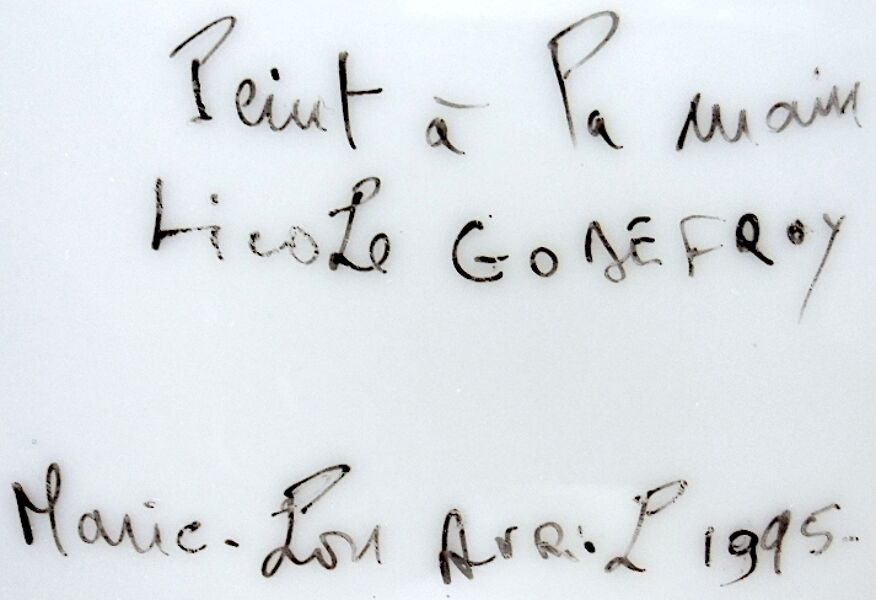 Peint à la main
Nicole GODEFROY
Marie-Lou AVRiL 1995